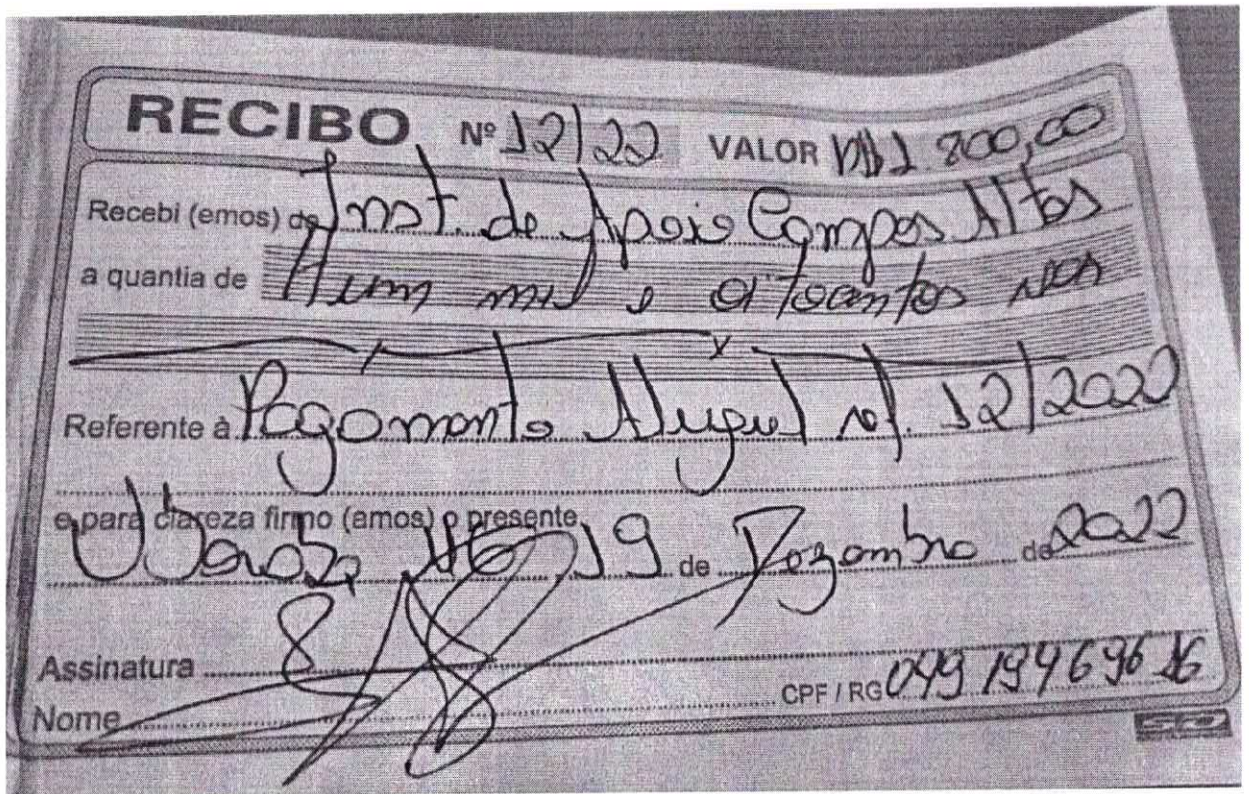 RECIBO Nº 12/22 VALOR R$ 1.800,00
Recebi (emos) de Inst. de Apoio Campos Altos
a quantia de Hum mil e oitocentos reais
Referente à Pagamento Aluguel ref. 12/2022
e para clareza firmo (amos) o presente
Uberaba, MG, 19 de Dezembro de 2022
Assinatura
CPF / RG 049 194 696 16
Nome